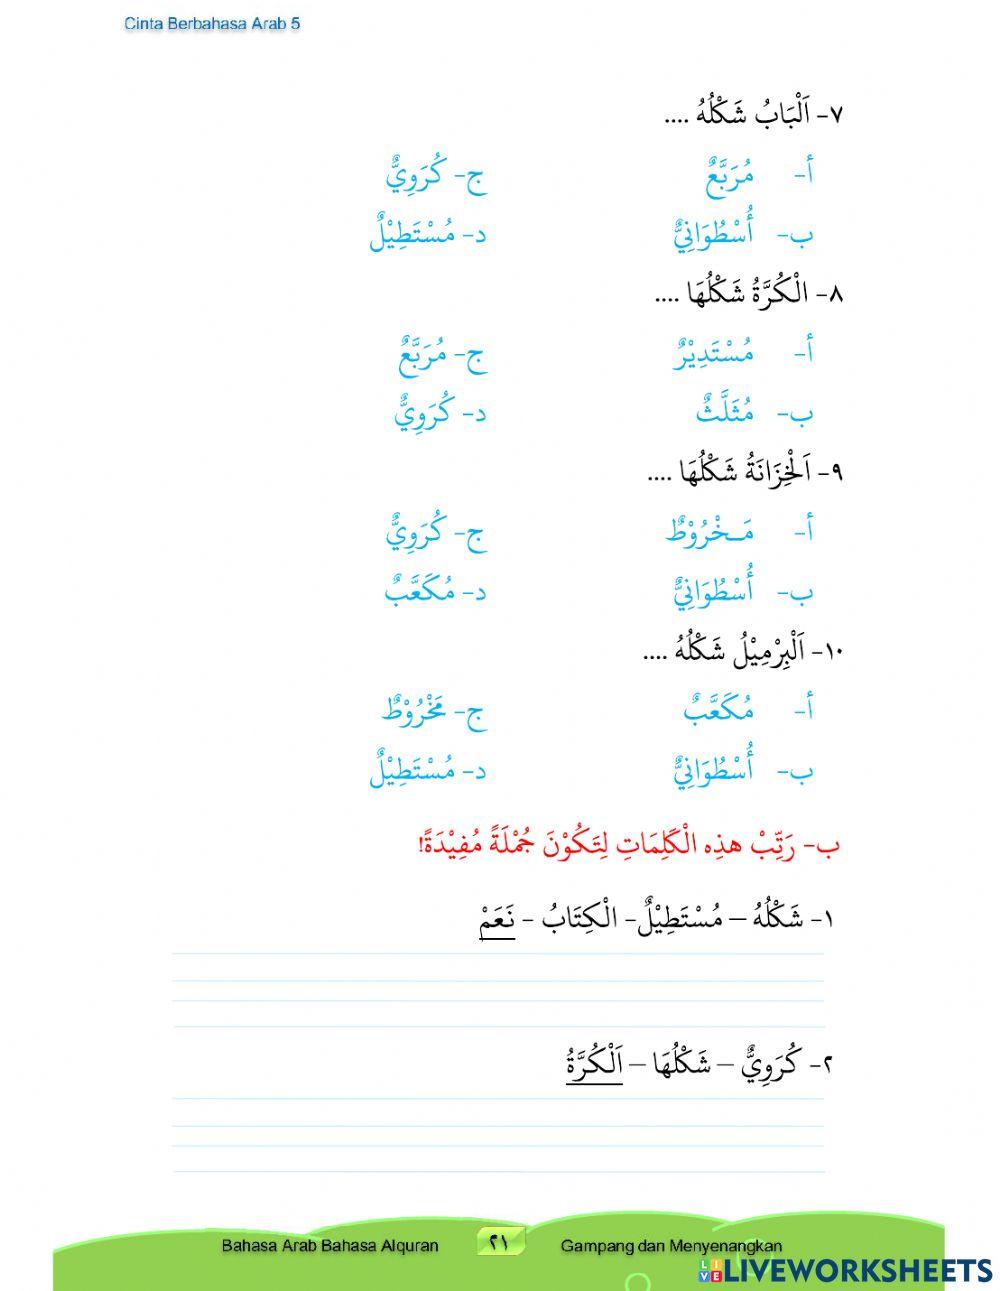 Cinta Berbahasa Arab 5
٧- اَلْبَابُ شَكْلُهُ ....
أ- مُرَبَّعٌ ج- كُرَوِيٌّ
ب- أُسْطُوَانِيٌّ د- مُسْتَطِيْلٌ
٨- الْكُرَّةُ شَكْلُهَا ....
أ- مُسْتَدِيْرٌ ج- مُرَبَّعٌ
ب- مُثَلَّثٌ د- كُرَوِيٌّ
٩- اَلْخِزَانَةُ شَكْلُهَا ....
أ- مَـخْرُوْطٌ ج- كُرَوِيٌّ
ب- أُسْطُوَانِيٌّ د- مُكَعَّبٌ
١٠- اَلْبِرْمِيْلُ شَكْلُهُ ....
أ- مُكَعَّبٌ ج- مَخْرُوْطٌ
ب- أُسْطُوَانِيٌّ د- مُسْتَطِيْلٌ
ب- رَتِّبْ هذِه الْكَلِمَاتِ لِتَكُوْنَ جُمْلَةً مُفِيْدَةً!
١- شَكْلُهُ – مُسْتَطِيْلٌ- الْكِتَابُ - نَعَمْ
٢- كُرَوِيٌّ – شَكْلُهَا – اَلْكُرَّةُ
Bahasa Arab Bahasa Alquran ٢١ Gampang dan Menyenangkan
LIVE LIVEWORKSHEETS